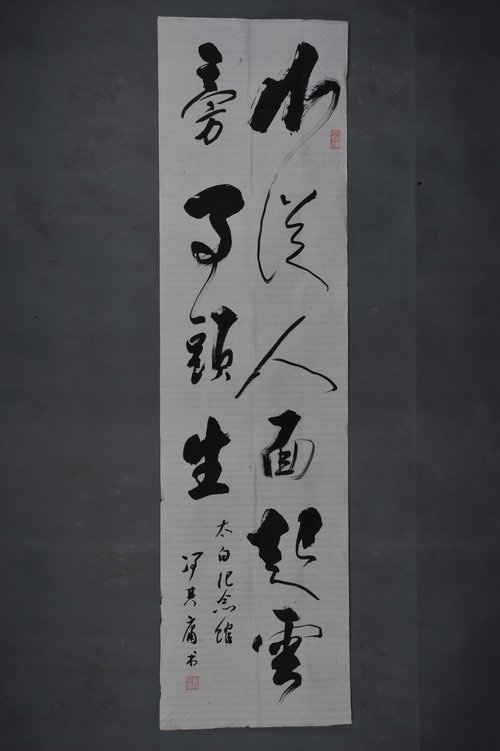 山從人面起雲
旁馬頭生
太白记念馆
冯其庸书